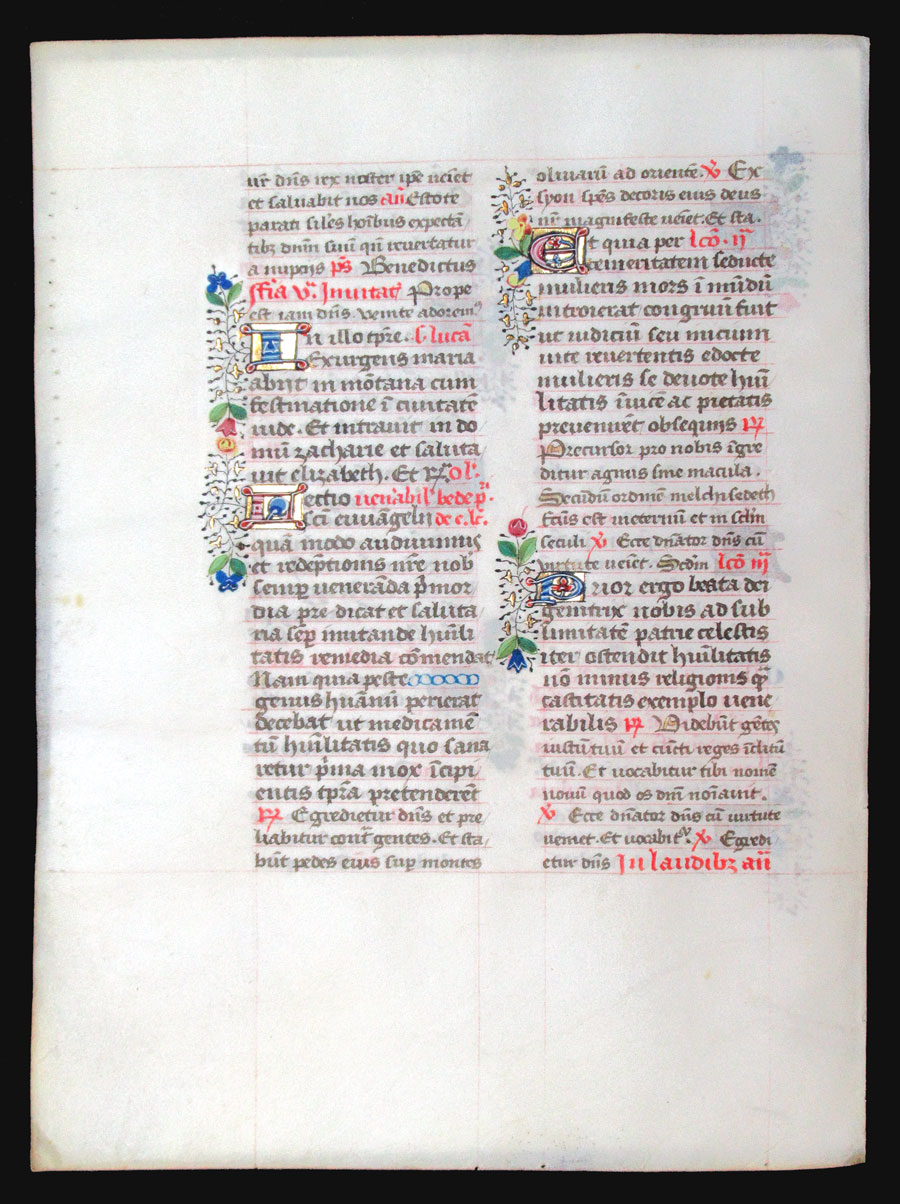 ur dn̄s rex noster ip̄e ueiet
et saluabit nos an̄ Estote
parati siles hoībus expectā
tibꝫ dn̄m suū qn̄ reuertatur
a nupcijs ps̄ Benedictus
ffīa vͭ. Inuitaͭ Prope
est iam dn̄s. venite adoremꝰ
In illo tp̄re. s. lucā
Exurgens maria
abijt in mōtana cum
festinatione ī ciuitatē
iude. Et intrauit in do
mū zacharie et saluta
uit elizabeth. Et rͭ. Ol̄.
Lectio uenābilˢ bede p̄.
Scī euuāgelij de e. lc̄.
quā modo audiuimus
et redēptionis nr̄e nob̄
semp̄ uenerāda p̄mor
dia p̄re dicat et saluta
ria sēp̄ imitande hūili
tatis remedia cōmendat
Nam quia peste
genus hūanū perierat
decebat ut medicamē
tū hūilitatis quo sana
retur p̄ma mox īcipi
entis tp̄ra pretenderēt
℟ Egredietur dn̄s et pre
liabitur cont̄ gentes. Et sta
būt pedes eius sup̄ montes
oliuarū ad oriētē. ℣ Ex
syon sp̄es decoris eius deus
nr̄ magnifeste ueiet. Et sta.
Et quia per lcō. ij
temeritatem seducte
mulieris mors ī mūdū
introierat congruū fuit
ut iudiciū seu inicium
uite reuertentis edocte
mulieris se deuote hūi
litatis īuicē ac pietatis
preuenirēt obsequijs ℟
Precursor pro nobis īgre
ditur agnus sine macula.
Secūdū ordinē melchisedech
fc̄us est ineternū et in sclm̄
seculi ℣ Ecce dn̄ator dn̄s cū
virtute ueiet. Scdm̄ lcō iij
Prior ergo beata dei
genitrix nobis ad sub
limitatē patrie celestis
iter ostendit hūilitatis
nō minus religionis qͣ
castitatis exemplo uene
rabilis ℟ Videbūt gētes
iustū tuū et cūcti reges īclitū
tuū. Et uocabitur tibi nomē
nouū quod os dn̄i noīauit.
℣ Ecce dn̄ator dn̄s cū uirtute
ueniet. Et uocabitͬ. ℣ Egredi
etur dn̄s In laudibꝫ an̄